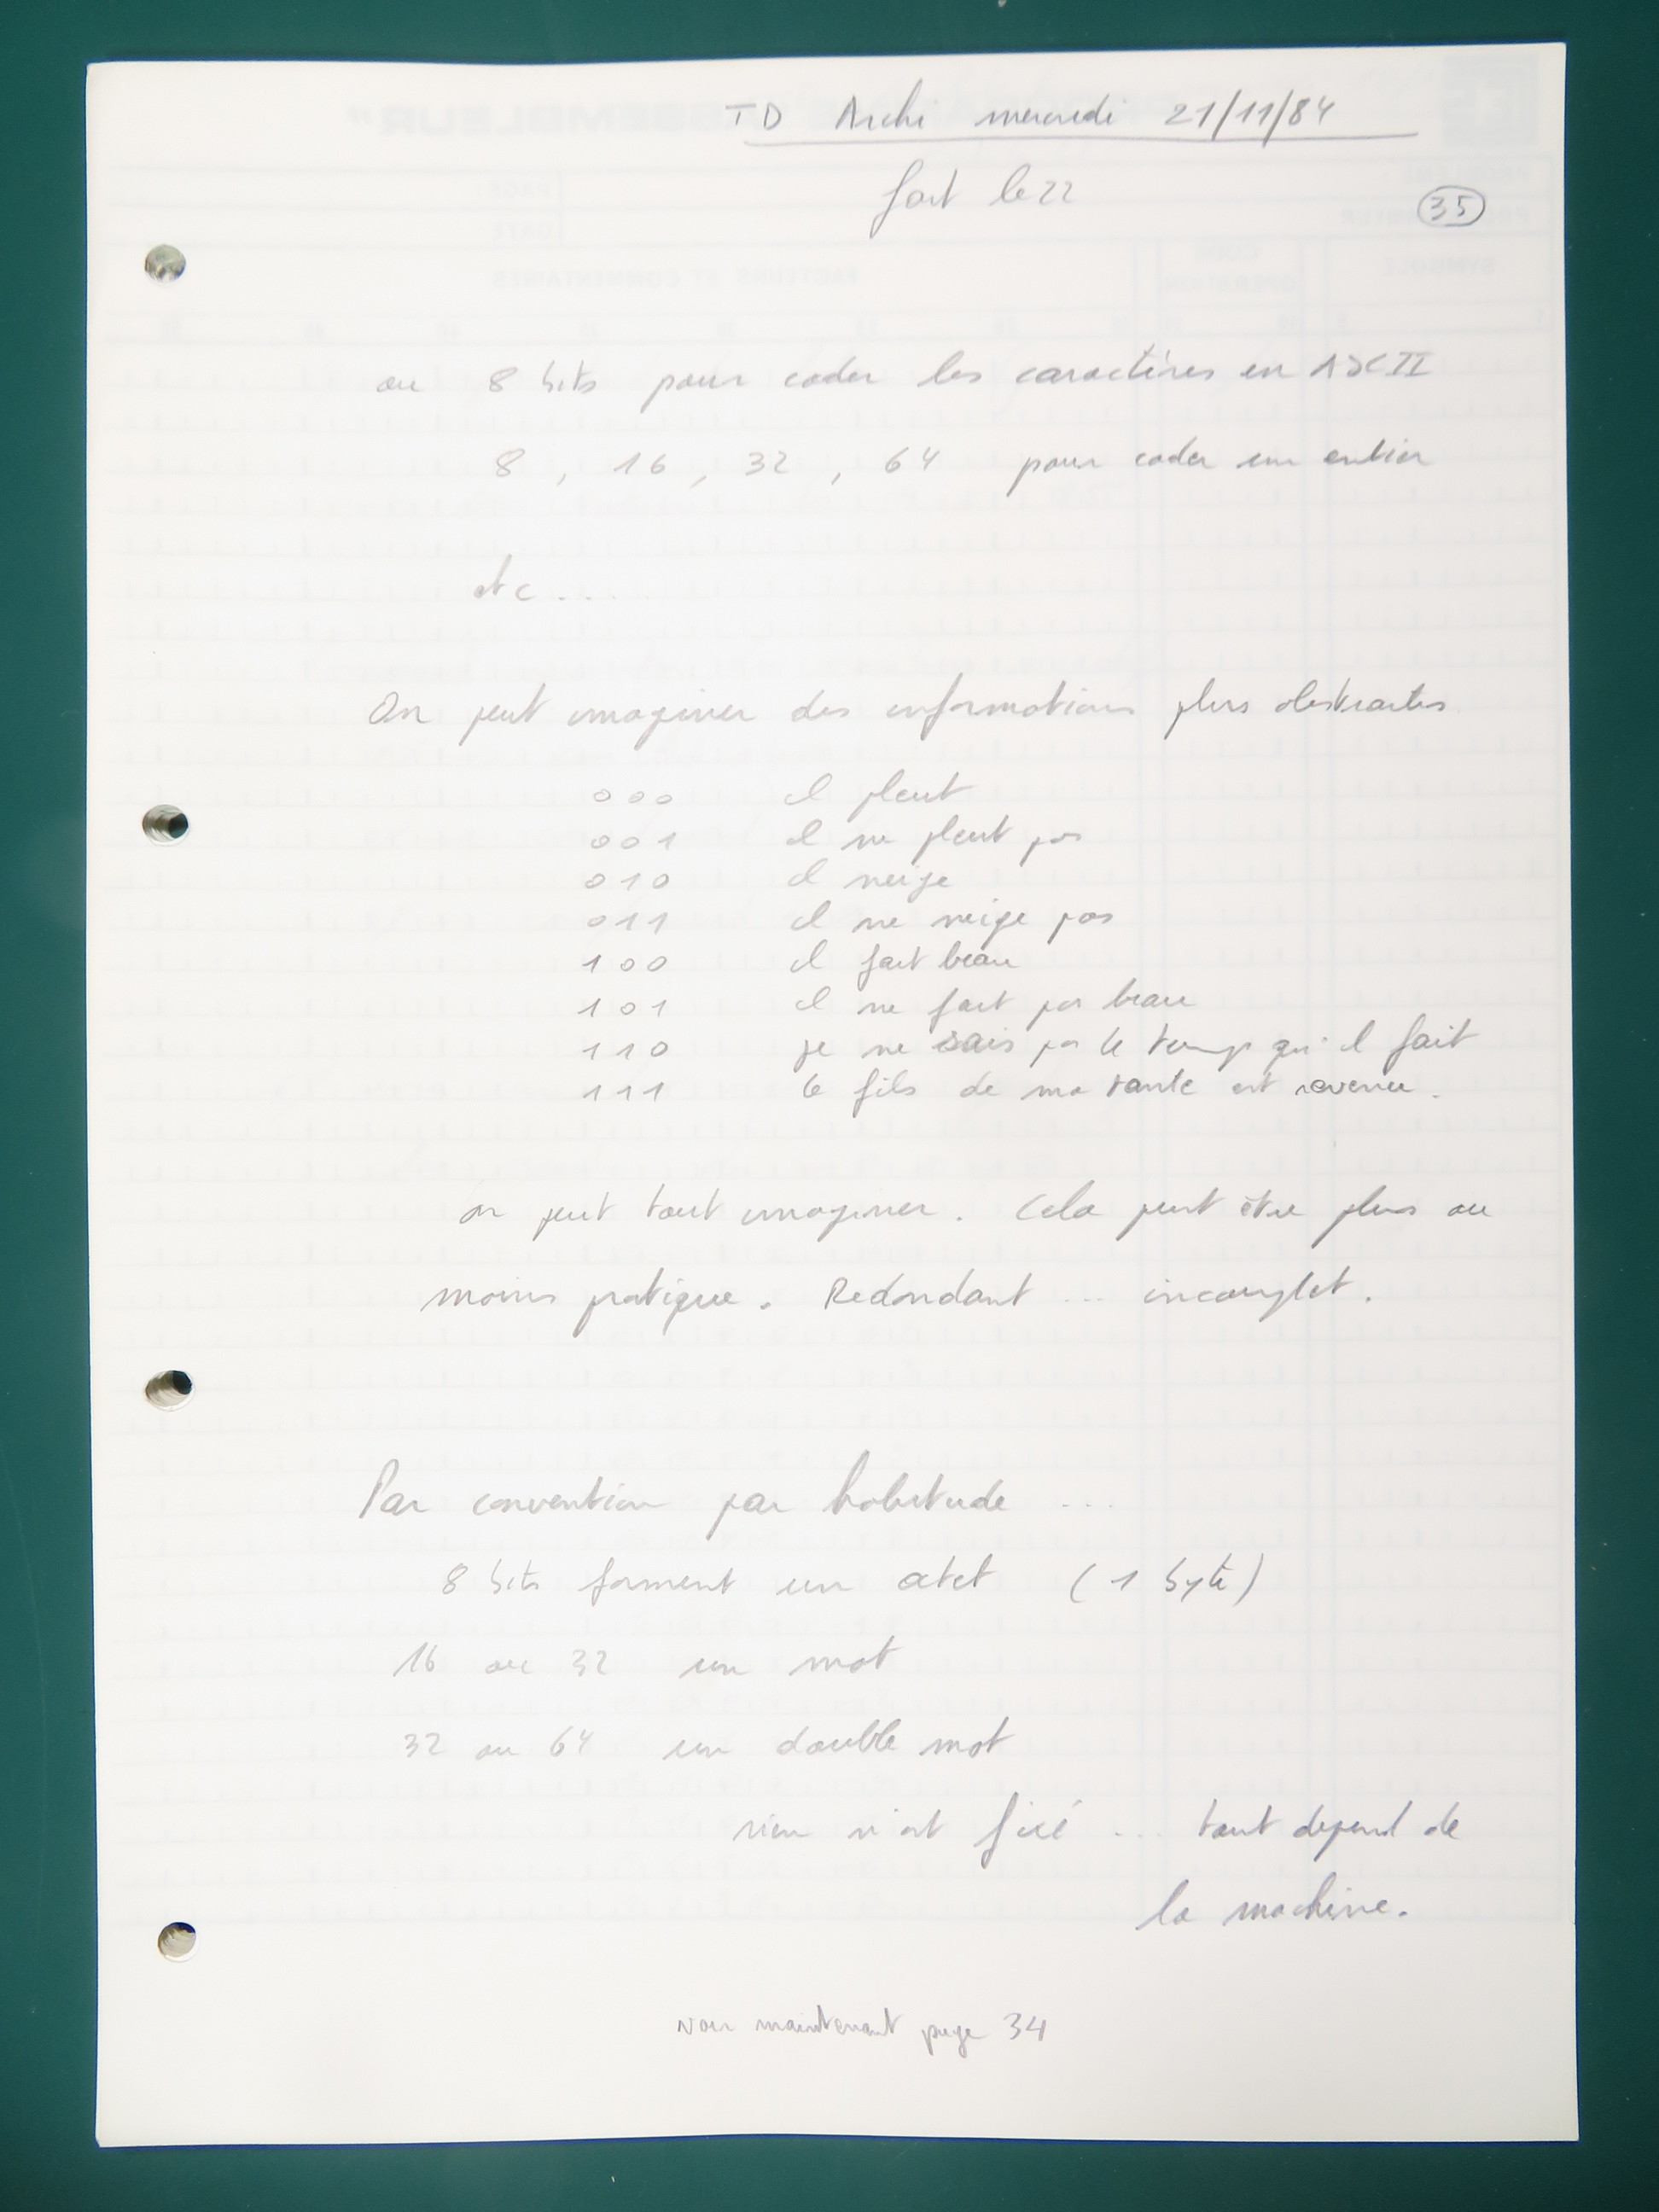 TD Archi mercredi 21/11/84
fait le 22
35
ou 8 bits pour coder les caractères en ASCII
8 , 16 , 32 , 64 pour coder un entier
etc.....
On peut imaginer des informations plus abstraites
000 il pleut
001 il ne pleut pas
010 il neige
011 il ne neige pas
100 il fait beau
101 il ne fait pas beau
110 je ne sais pas le temps qu'il fait
111 le fils de ma tante est revenu.
on peut tout imaginer. Cela peut être plus ou
moins pratique. Redondant ... incomplet.
Par convention par habitude ...
8 bits forment un octet (1 byte)
16 ou 32 un mot
32 ou 64 un double mot
rien n'est fixé ... tout depend de
la machine.
voir maintenant page 34